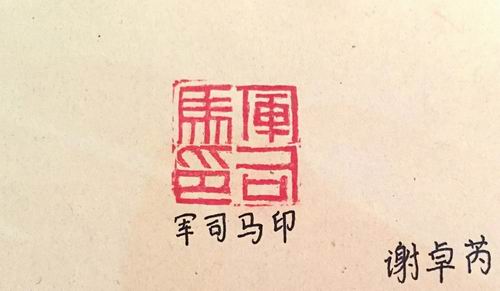 軍司馬印
军司马印
谢卓芮